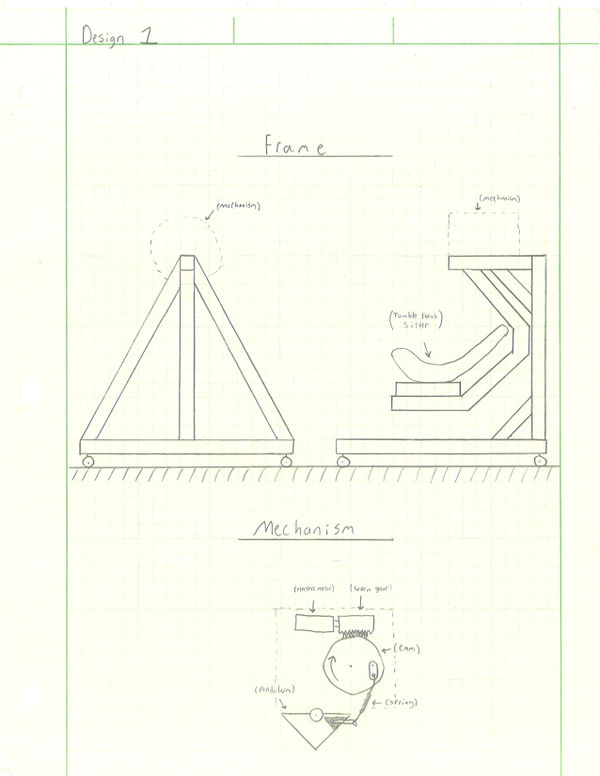 Design 1
Frame
(mechanism)
(mechanism)
(Tumble Forms
Sitter)
Mechanism
(electric motor)
(worm gear)
(cam)
(pendulum)
(spring)